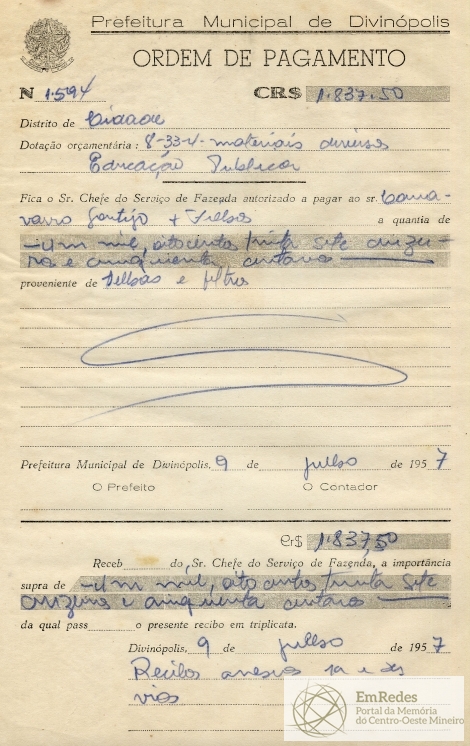 Prefeitura Municipal de Divinópolis
ORDEM DE PAGAMENTO
N 1.594 CR$ 1.837.50
Distrito de Cidade
Dotação orçamentária: 8-33-4- materiais diversos
Educação Publica
Fica o Sr. Chefe do Serviço de Fazenda autorizado a pagar ao sr.
Gontijo + a quantia de
-um mil, oitocentos trinta sete cruzei-
ros e cinquenta centavos
proveniente de e filtros
Prefeitura Municipal de Divinópolis, 9 de julho de 1957
O Prefeito O Contador
Cr$ 1.837,50
Receb do Sr. Chefe do Serviço de Fazenda, a importância
supra de -um mil, oito centos trinta sete
cruzeiros e cinquenta centavos
da qual pass o presente recibo em triplicata.
Divinópolis, 9 de julho de 1957
Recibos anexos
EmRedes
Portal da Memória
do Centro-Oeste Mineiro